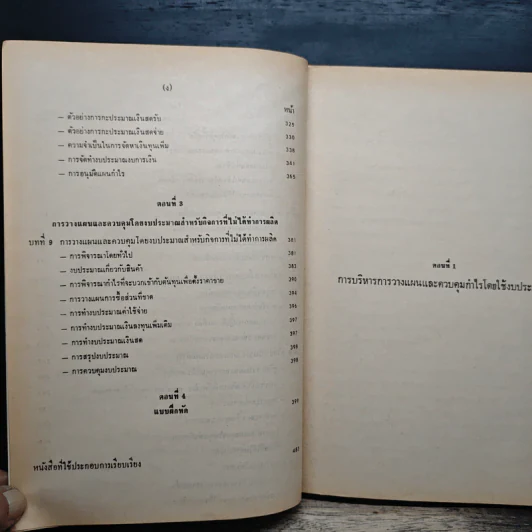 (ง)
หน้า
— ตัวอย่างการกะประมาณเงินสดรับ 325
— ตัวอย่างการกะประมาณเงินสดจ่าย 330
— ความจำเป็นในการจัดหาเงินทุนเพิ่ม 336
— การจัดทำงบประมาณงบการเงิน 341
— การอนุมัติแผนกำไร 365
ตอนที่ 3
การวางแผนและควบคุมโดยงบประมาณสำหรับกิจการที่ไม่ได้ทำการผลิต
บทที่ 9 การวางแผนและควบคุมโดยงบประมาณสำหรับกิจการที่ไม่ได้ทำการผลิต 381
— การพิจารณาโดยทั่วไป 381
— งบประมาณเกี่ยวกับสินค้า 382
— การพิจารณากำไรที่จะบวกเข้ากับต้นทุนเพื่อตั้งราคาขาย 383
— การวางแผนการซื้อส่วนที่ขาด 394
— การทำงบประมาณค่าใช้จ่าย 396
— การทำงบประมาณเงินลงทุนเพิ่มเติม 397
— การทำงบประมาณเงินสด 397
— การสรุปงบประมาณ 398
— การควบคุมงบประมาณ 398
ตอนที่ 4
แบบฝึกหัด 399
หนังสือที่ใช้ประกอบการเรียบเรียง
ตอนที่ 1
การบริหารการวางแผนและควบคุมกำไรโดยใช้งบประ